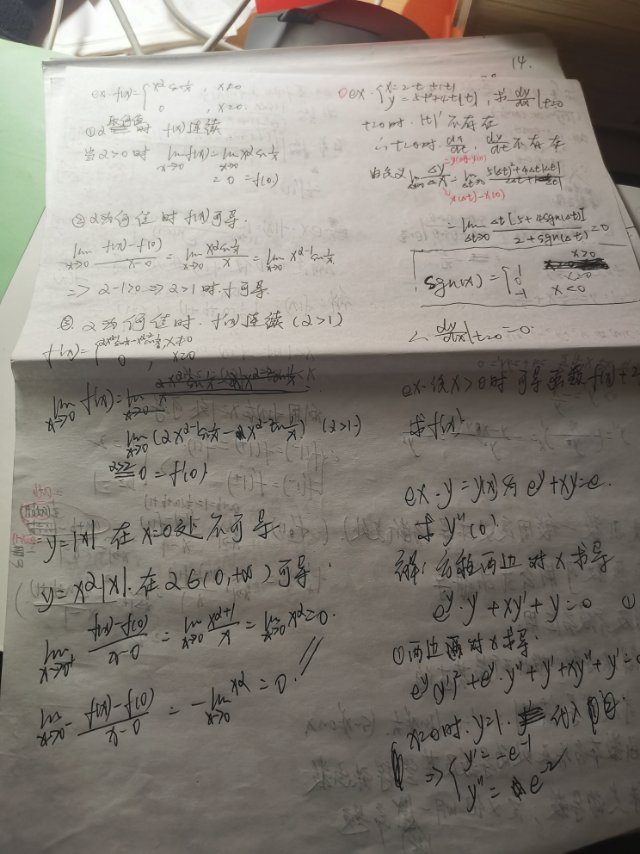 14.
ex. f(x)={x^α sin 1/x , x≠0
0 , x=0.
① α 时 f(x)连续
当α>0时 lim x→0 f(x)=lim x→0 x^α sin 1/x
=0=f(0)
② α为何值时 f(x)可导.
lim x→0 (f(x)-f(0))/(x-0) = lim x→0 (x^α sin 1/x)/x = lim x→0 x^(α-1) sin 1/x
=> α-1>0 => α>1时.f可导
③ α为何值时. f'(x)连续 (α>1)
0 , x=0
lim x→0 f'(x)=lim x→0
lim x→0 (αx^(α-1) sin 1/x - x^(α-2) 1/x) (α>1)
α>2 = 0=f'(0)
y=|x| 在x=0处不可导
y=x^α|x|.在α∈(0,+∞)可导.
lim x→0+ (f(x)-f(0))/(x-0) = lim x→0 x^(α+1)/x = lim x→0 x^α=0.
lim x→0- (f(x)-f(0))/(x-0) = -lim x→0 x^α = 0.
ex. {x=2t+|t|
y=5t²+4t|t| ,求dy/dx|t=0
t=0时.|t|'不存在
∴t=0时 dx/dt, dy/dt不存在
由定义 lim Δy/Δx = lim Δt→0 (5(Δt)²+4Δt|Δt|)/(2Δt+|Δt|)
y(Δt)-y(0)
x(Δt)-x(0)
=lim Δt→0 Δt[5+4sgn(Δt)]/(2+sgn(Δt))=0
sgn(x)={1 x>0
0
-1 x<0
∴ dy/dx|t=0=0.
ex. x>0时可导函数f(x)+2
求f(x)'
ex. y=y(x)为e^y+xy=e.
求y''(0)
解:方程两边对x求导
e^y·y'+xy'+y=0 ①
①两边再对x求导.
e^y(y')²+e^y·y''+y'+xy''+y'=0
x=0时.y=1. 代入①②.
=>{y'=-e^-1
y''=e^-2